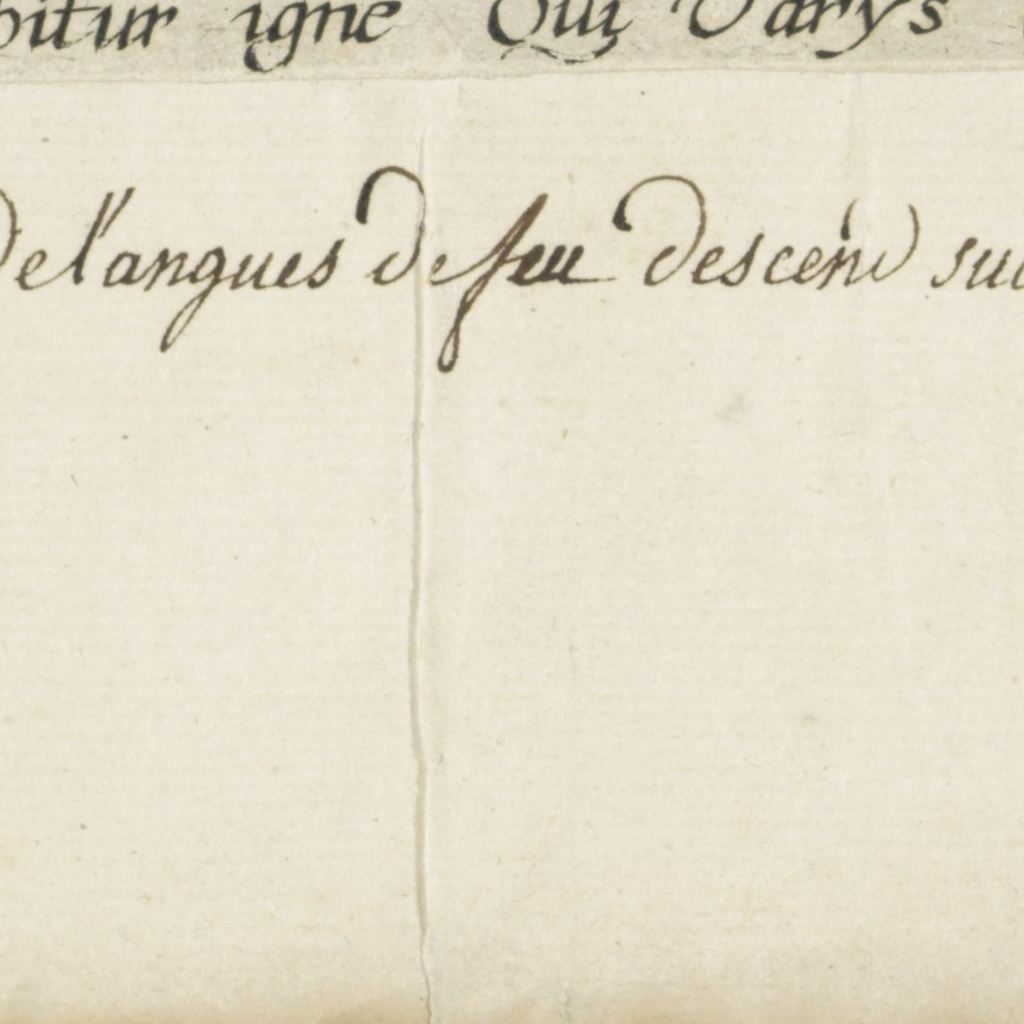 bitur igne Qui Varys
de l'angues de feu descend sur